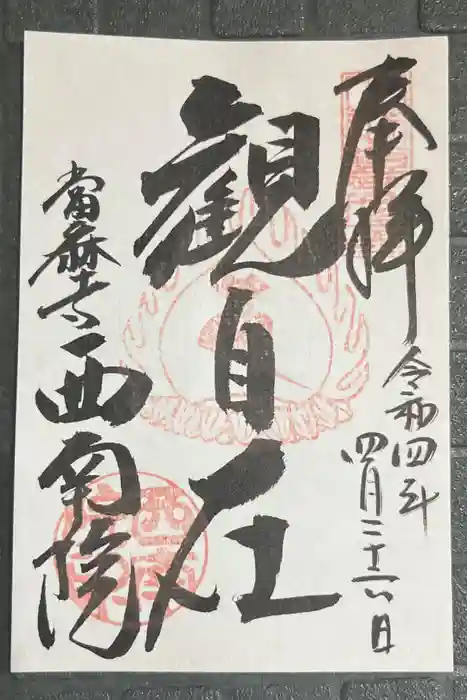 奉拝
令和四年
四月二十六日
観自在
當麻寺西南院